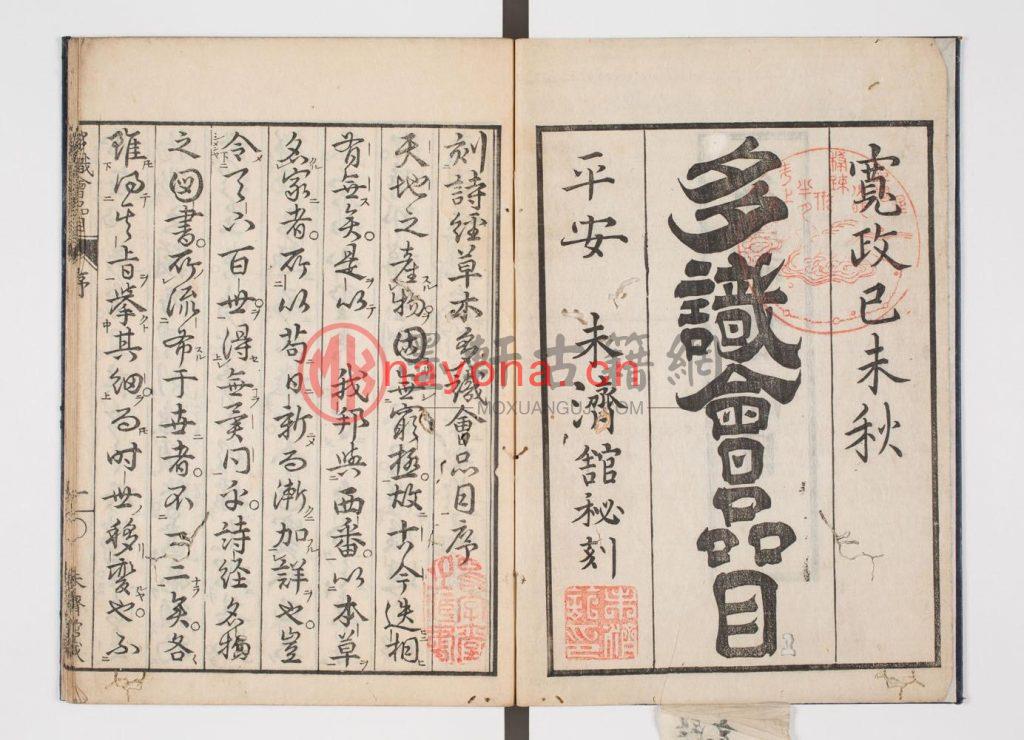 寛政己未秋
多識會品目
平安 未濟舘秘刻
刻詩経草木多識會品目序
天地之産物固無窮極故古今迭相
有無矣是以 我邦與西番以本草
名家者所以苟日新而漸加詳也豈
令百世得無異同乎詩経名物
之圖書所流布于世者不一二矣各
雖得其旨挙其細而時世移変也不
多識會品目
序
nayona.cn
墨軒古籍網
MOXUANGUJI.COM